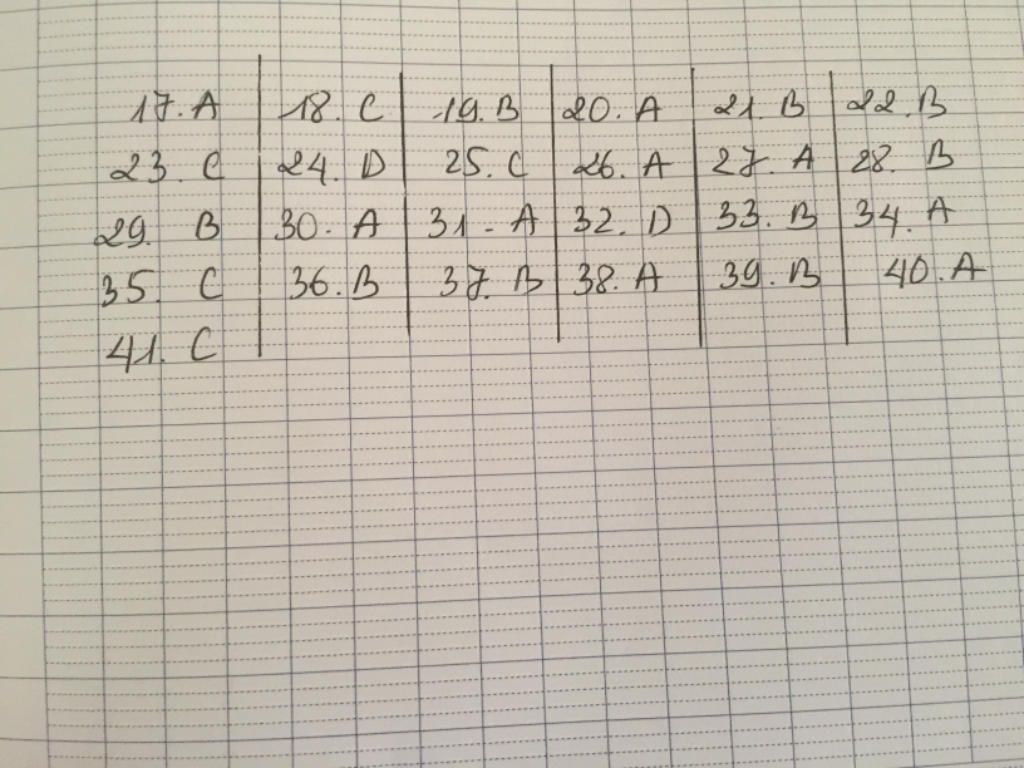 17. A 18. C 19. B 20. A 21. B 22. B
23. C 24. D 25. C 26. A 27. A 28. B
29. B 30. A 31 - A 32. D 33. B 34. A
35. C 36. B 37. B 38. A 39. B 40. A
41. C